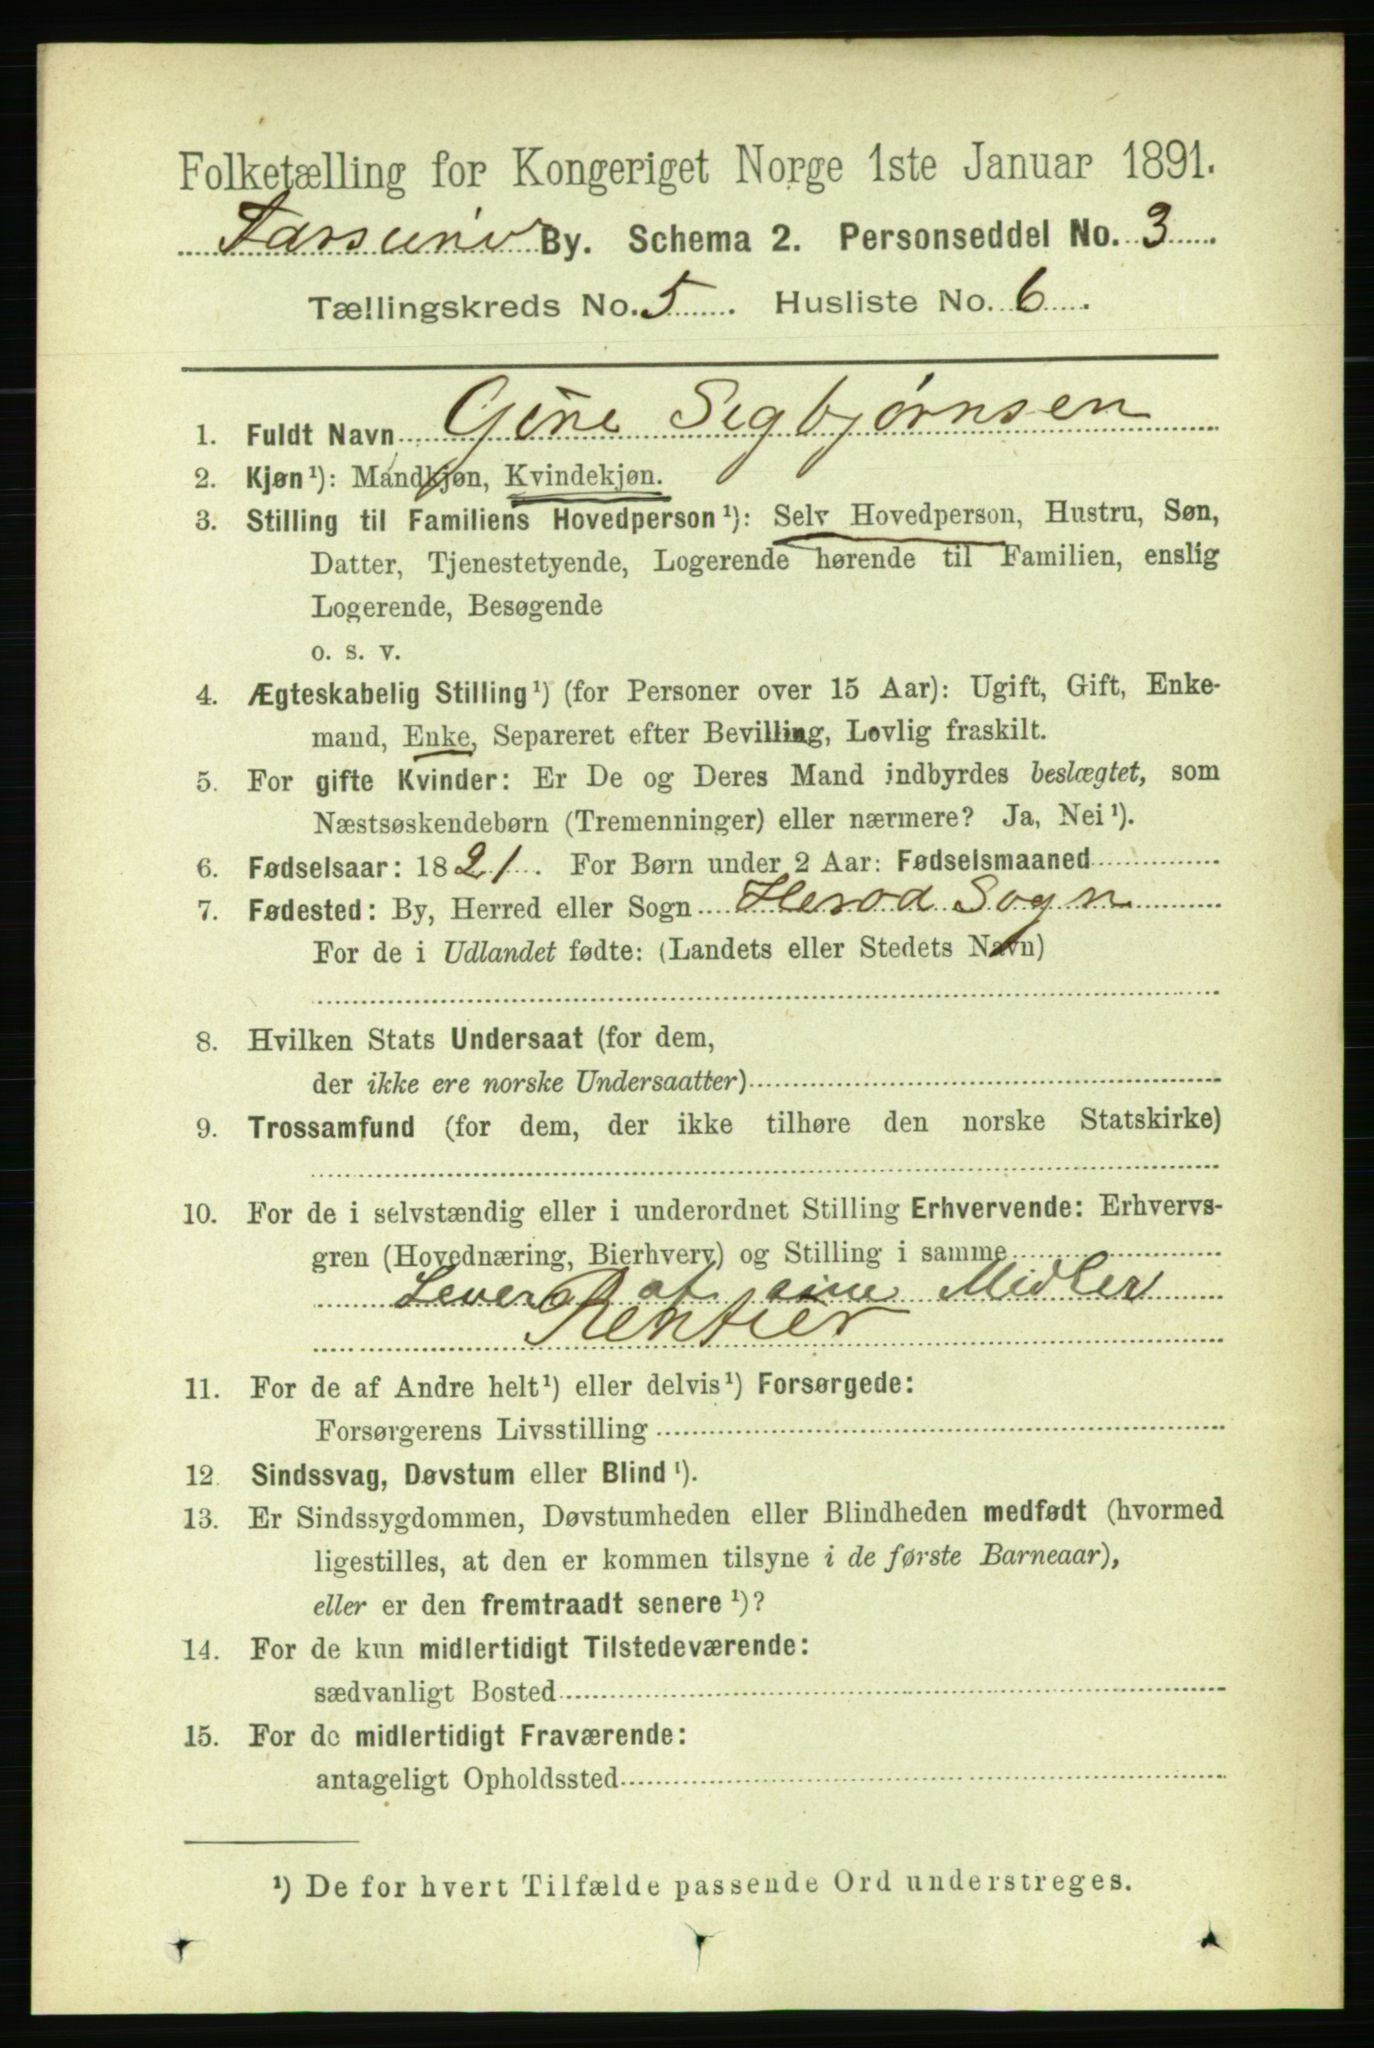 Folketælling for Kongeriget Norge 1ste Januar 1891.
Farsund By. Schema 2. Personseddel No. 3
Tællingskreds No. 5. Husliste No. 6.
1. Fuldt Navn Gine Segbjørnsen
2. Kjøn¹): Mandkjøn, Kvindekjøn.
3. Stilling til Familiens Hovedperson¹): Selv Hovedperson, Hustru, Søn,
Datter, Tjenestetyende, Logerende hørende til Familien, enslig
Logerende, Besøgende
o. s. v.
4. Ægteskabelig Stilling¹) (for Personer over 15 Aar): Ugift, Gift, Enke-
mand, Enke, Separeret efter Bevilling, Lovlig fraskilt.
5. For gifte Kvinder: Er De og Deres Mand indbyrdes beslægtet, som
Næstsøskendebørn (Tremenninger) eller nærmere? Ja, Nei¹).
6. Fødselsaar: 1821. For Børn under 2 Aar: Fødselsmaaned
7. Fødested: By, Herred eller Sogn Herod Sogn
For de i Udlandet fødte: (Landets eller Stedets Navn)
8. Hvilken Stats Undersaat (for dem,
der ikke ere norske Undersaatter)
9. Trossamfund (for dem, der ikke tilhøre den norske Statskirke)
10. For de i selvstændig eller i underordnet Stilling Erhvervende: Erhvervs-
gren (Hovednæring, Bierhverv) og Stilling i samme
Lever af sine Midler
Rentier
11. For de af Andre helt¹) eller delvis¹) Forsørgede:
Forsørgerens Livsstilling
12. Sindssvag, Døvstum eller Blind¹).
13. Er Sindssygdommen, Døvstumheden eller Blindheden medfødt (hvormed
ligestilles, at den er kommen tilsyne i de første Barneaar),
eller er den fremtraadt senere¹)?
14. For de kun midlertidigt Tilstedeværende:
sædvanligt Bosted
15. For de midlertidigt Fraværende:
antageligt Opholdssted
¹) De for hvert Tilfælde passende Ord understreges.